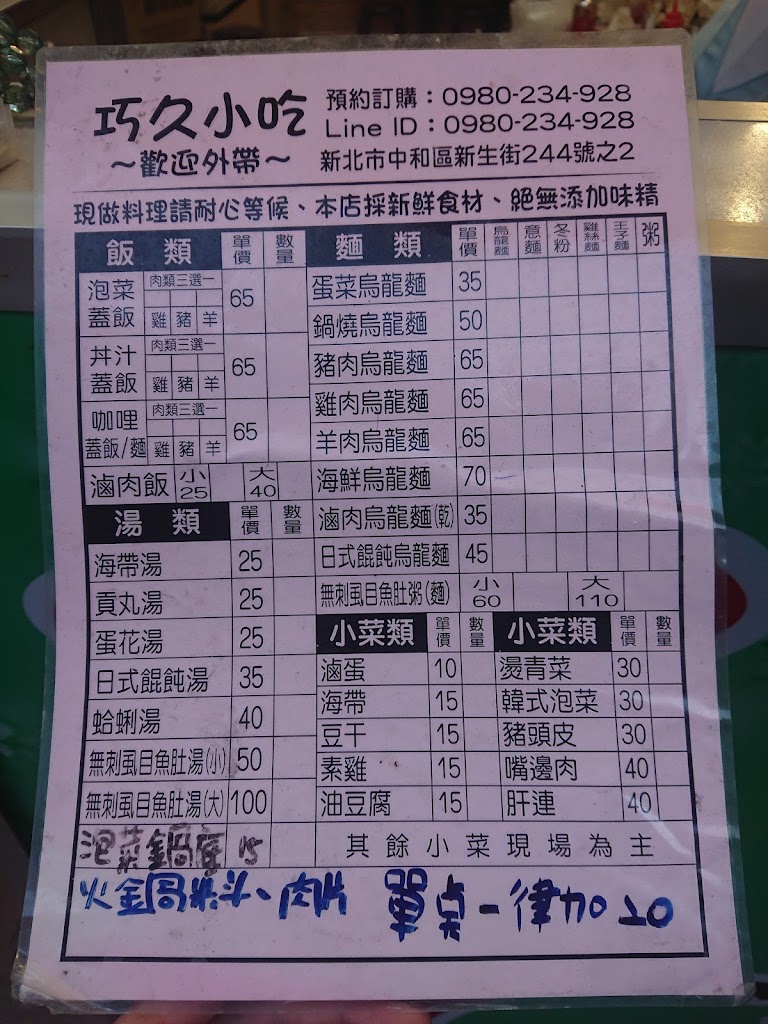 巧久小吃
～歡迎外帶～
預約訂購：0980-234-928
Line ID：0980-234-928
新北市中和區新生街244號之2
現做料理請耐心等候、本店採新鮮食材、絕無添加味精
飯類 單價 數量
泡菜蓋飯 肉類三選一 雞 豬 羊 65
丼汁蓋飯 肉類三選一 雞 豬 羊 65
咖哩蓋飯/麵 肉類三選一 雞 豬 羊 65
滷肉飯 小25 大40
湯類 單價 數量
海帶湯 25
貢丸湯 25
蛋花湯 25
日式餛飩湯 35
蛤蜊湯 40
無刺虱目魚肚湯(小) 50
無刺虱目魚肚湯(大) 100
泡菜鍋底 15
麵類 單價 烏龍麵 意麵 冬粉 雞絲麵 王子麵 粥
蛋菜烏龍麵 35
鍋燒烏龍麵 50
豬肉烏龍麵 65
雞肉烏龍麵 65
羊肉烏龍麵 65
海鮮烏龍麵 70
滷肉烏龍麵(乾) 35
日式餛飩烏龍麵 45
無刺虱目魚肚粥(麵) 小60 大110
小菜類 單價 數量
滷蛋 10
海帶 15
豆干 15
素雞 15
油豆腐 15
小菜類 單價 數量
燙青菜 30
韓式泡菜 30
豬頭皮 30
嘴邊肉 40
肝連 40
其餘小菜現場為主
火鍋料、肉片 單點一律加20